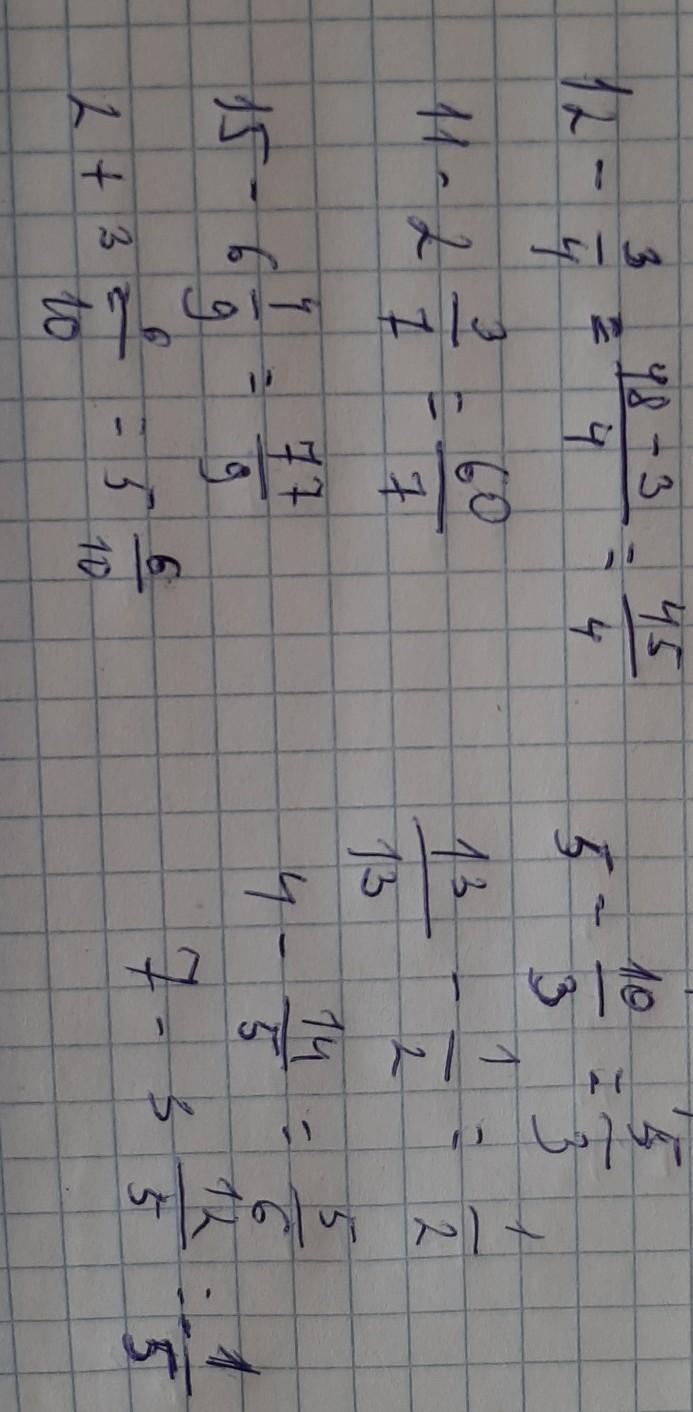 12 - 3/4 = (48 - 3)/4 = 45/4
11 - 2 3/7 = 60/7
15 - 6 4/9 = 77/9
2 + 3 6/10 = 5 6/10
5 - 10/3 = 5/3
13/13 - 1/2 = 1/2
4 - 14/5 = 5/6
7 - 3 12/5 = 1/5